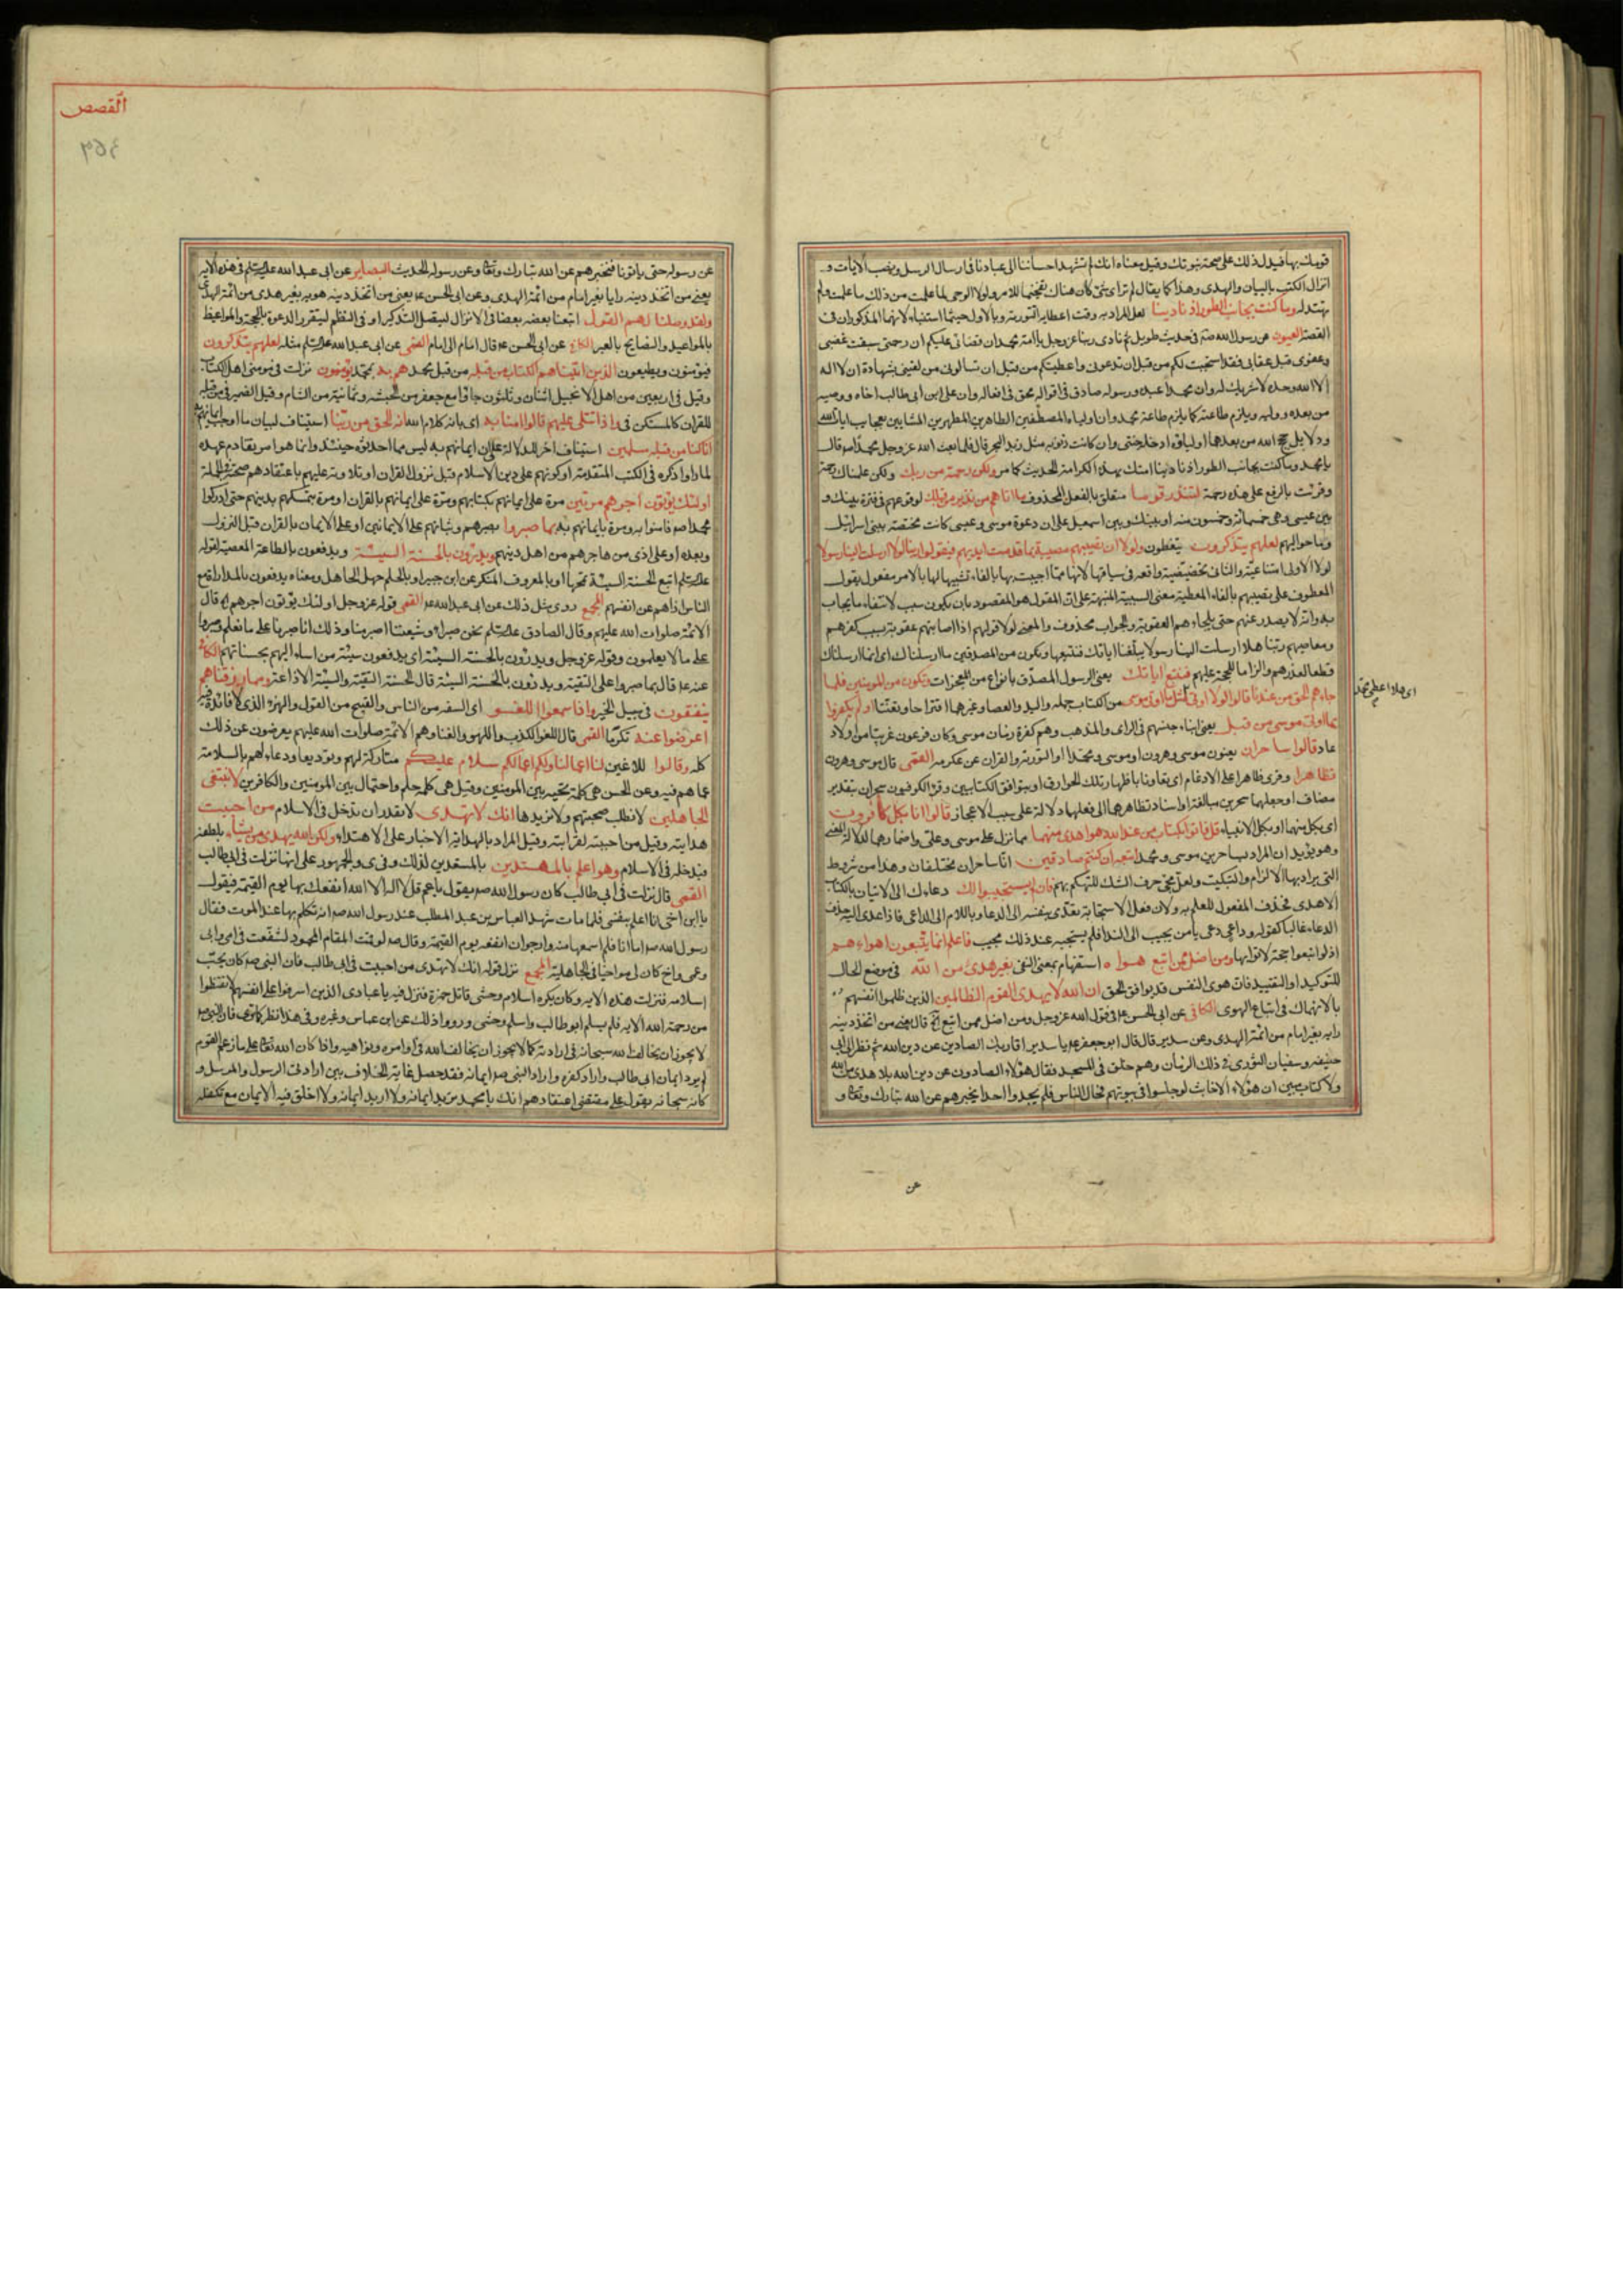 قومك بها فيدل ذلك على صحة نبوتك وقيل معناه انك لم تشهد احساننا الى عبادنا في ارسال الرسل ونصب الايات و
انزال الكتب بالبيان والهدى وهذا كما يقال لم تر اى شى كان هناك تفخيما للامر ولولا الوحى لما علمت من ذلك ما علمت ولم
تهتد له وما كنت بجانب الطور اذ نادينا لعل المراد به وقت اعطائه التورية وبالاول حيثما استنباه لانهما المذكوران فى
القصة العيون عن رسول الله صم فى حديث طويل ثم نادى ربنا عز وجل يا امة محمد ان قضائى عليكم ان رحمتى سبقت غضبى
وعفوى قبل عقابى فقد استجبت لكم من قبل ان تدعونى واعطيتكم من قبل ان تسالونى من لقينى بشهادة ان لا اله
الا الله وحده لا شريك له وان محمدا عبده ورسوله صادق فى اقواله محق فى افعاله وان على ابن ابى طالب اخاه ووصيه
من بعده ووليه ويلزم طاعته كما يلزم طاعة محمد وان اولياءه المصطفين الطاهرين المطهرين بعجايب ايات الله
ودلايل حجج الله من بعدهما اولياؤه ادخله جنتى وان كانت ذنوبه مثل زبد البحر قال فلما بعث الله عز وجل محمدا صم قال
يا محمد وما كنت بجانب الطور اذ نادينا امتك بهذه الكرامة الحديث كما مر ولكن رحمة من ربك ولكن علمناك رحمة
وقرئت بالرفع على هذه رحمة لتنذر قوما متعلق بالفعل المحذوف ما اتاهم من نذير من قبلك لوقوعهم فى فترة بينك و
بين عيسى وهى خمسمائة وخمسون سنة او بينك وبين اسمعيل على ان دعوة موسى وعيسى كانت مختصة ببنى اسرائيل
وما حواليهم لعلهم يتذكرون يتعظون ولولا ان تصيبهم مصيبة بما قدمت ايديهم فيقولوا ربنا لولا ارسلت الينا رسولا
لولا الاولى امتناعية والثانى تحضيضية واقعة فى سياقها لانها مما اجيبت بها بالفاء تشبيها لها بالامر مفعول يقول
المعطوف على تصيبهم بالفاء المعطية معنى السببية المنبهة على ان القول هو المقصود بان يكون سبب لانتفاء ما يجاب
به وانه لا يصدر عنهم حتى يلجاءهم العقوبة والجواب محذوف والمعنى لولا قولهم اذا اصابتهم عقوبة بسبب كفرهم
ومعاصيهم ربنا هلا ارسلت الينا رسولا يبلغنا اياتك فنتبعها ونكون من المصدقين ما ارسلناك اى انما ارسلناك
قطعا لعذرهم والزاما للحجة عليهم فنتبع اياتك يعنى الرسول المصدق بانواع من المعجزات ونكون من المومنين فلما
جاءهم الحق من عندنا قالوا لولا اوتى مثل ما اوتى موسى من الكتاب جملة واليد والعصا وغيرهما اقتراحا وتعنتا او لم يكفروا
بما اوتى موسى من قبل يعنى ابناء جنسهم فى الراى والمذهب وهم كفرة زمان موسى وكان فرعون عربيا من اولاد
عاد قالوا ساحران يعنون موسى وهرون او موسى ومحمدا او التورية والقران عن عكرمه القمى قال موسى وهرون
تظاهرا وقرى ظاهرا على الادغام اى تعاونا باظهار تلك الخوارق او بتوافق الكتابين وقرا الكوفيون سحران بتقدير
مضاف او جعلهما سحرين مبالغة او اسناد تظاهرهما الى فعلهما دلالة على سبب الاعجاز قالوا انا بكل كافرون
اى بكل منهما او بكل الانبياء قل فاتوا بكتاب من عند الله هو اهدى منهما مما نزل على موسى وعلى واضمارهما لدلالة المعنى
وهو يؤيد ان المراد بساحرين موسى ومحمد اتبعه ان كنتم صادقين انا ساحران مختلفان وهذا من شروط
التى يراد بها الالزام والتبكيت ولعل مجى حرف الشك للتهكم بهم فان لم يستجيبوا لك دعاءك الى الاتيان بالكتاب
الاهدى فحذف المفعول للعلم به ولان فعل الاستجابة يعدى بنفسه الى الدعاء وباللام الى الداعى فاذا عدى اليه حذف
الدعاء غالبا كقوله وداع دعى يا من يجيب الى الندا فلم يستجبه عند ذلك مجيب فاعلم انما يتبعون اهواءهم
اذ لو اتبعوا حجة لاتوا بها ومن اضل ممن اتبع هواه استفهام بمعنى النفى بغير هدى من الله فى موضع الحال
للتوكيد او التقييد فان هوى النفس قد يوافق الحق ان الله لا يهدى القوم الظالمين الذين ظلموا انفسهم
بالانهماك فى اتباع الهوى الكافى عن ابى الحسن ع فى قول الله عز وجل ومن اضل ممن اتبع الخ قال يعنى من اتخذ دينه
رايه بغير امام من ائمة الهدى وعن سدير قال قال ابو جعفر ع يا سدير افاريك الصادين عن دين الله ثم نظر الى ابى
حنيفه وسفيان الثورى فى ذلك الزمان وهم حلق فى المسجد فقال هؤلاء الصادون عن دين الله بلا هدى من الله
ولا كتاب مبين ان هؤلاء الاخابث لو جلسوا فى بيوتهم فجال الناس فلم يجدوا احدا يخبرهم عن الله تبارك وتعالى و
عن
القصص
٣٥٩
عن رسوله حتى ياتونا فنخبرهم عن الله تبارك وتعالى وعن رسوله الحديث البصاير عن ابى عبد الله عليه السلم فى هذه الاية
يعنى من اتخذ دينه رايا بغير امام من ائمة الهدى وعن ابى الحسن ع يعنى من اتخذ دينه هويه بغير هدى من ائمة الهدى
ولقد وصلنا لهم القول اتبعنا بعضه بعضا فى الانزال ليتصل التذكير او فى النظم ليتقرر الدعوة بالحجة والمواعظ
بالمواعيد والنصايح بالعبر الكافى عن ابى الحسن ع قال امام الى امام القمى عن ابى عبد الله عليه السلم مثله لعلهم يتذكرون
فيؤمنون ويطيعون الذين اتيناهم الكتاب من قبله من قبل محمد هم به بمحمد يؤمنون نزلت فى مومنى اهل الكتاب
وقيل فى اربعين من اهل الانجيل اثنان وثلثون جاؤا مع جعفر من الحبشه وثمانية من الشام وقيل الضمير فى من قبله
للقران كالمستكن فى واذا تتلى عليهم قالوا امنا به اى بانه كلام الله انه الحق من ربنا استيناف لبيان ما اوجب ايمانهم
انا كنا من قبله مسلمين استيناف اخر للدلالة على ان ايمانهم به ليس مما احدثوه حينئذ وانما هو امر تقادم عهده
لما راوا ذكره فى الكتب المتقدمة او كونهم على دين الاسلام قبل نزول القران او تلاوته عليهم باعتقادهم صحته فى الجملة
اولئك يؤتون اجرهم مرتين مرة على ايمانهم بكتابهم ومرة على ايمانهم بالقران او مرة بتمسكهم بدينهم حتى ادركوا
محمدا صم فامنوا به ومرة بايمانهم به بما صبروا بصبرهم وثباتهم على الايمانين او على الايمان بالقران قبل النزول
وبعده او على اذى من هاجرهم من اهل دينهم ويدرؤن بالحسنة السيئة ويدفعون بالطاعة المعصية لقوله
عليه السلم اتبع الحسنة السيئة تمحها او بالمعروف المنكر عن ابن جبير او بالحلم جهل الجاهل ومعناه يدفعون بالمداراة مع
الناس اذاهم عن انفسهم المجمع روى مثل ذلك عن ابى عبد الله ع القمى قوله عز وجل اولئك يؤتون اجرهم قال
الائمة صلوات الله عليهم وقال الصادق عليه السلم نحن صبراء وشيعتنا اصبر منا وذلك انا صبرنا على ما نعلم وصبروا
على ما لا يعلمون وقوله عز وجل ويدرؤن بالحسنة السيئة اى يدفعون سيئة من اساء اليهم بحسناتهم الكافى
عنه ع قال بما صبروا على التقية ويدرؤن بالحسنة السيئة قال الحسنة التقية والسيئة الاذاعة ومما رزقناهم
ينفقون فى سبيل الخير واذا سمعوا اللغو اى السفه من الناس والقبيح من القول والهزو الذى لا فائدة فيه
اعرضوا عنه تكرما القمى قال اللغو الكذب واللهو والغنا وهم الائمة صلوات الله عليهم يعرضون عن ذلك
كله وقالوا للاغين لنا اعمالنا ولكم اعمالكم سلام عليكم متاركة لهم وتوديعا ودعاء لهم بالسلامة
عما هم فيه وعن الحسن هى كلمة تحية بين المومنين وقيل هى كلمة حلم واحتمال بين المؤمنين والكافرين لا نبتغى
الجاهلين لا نطلب صحبتهم ولا نريدها انك لا تهدى لا تقدر ان تدخل فى الاسلام من احببت
هدايته وقيل من احببته لقرابته وقيل المراد بالهداية الاخبار على الاهتداء ولكن الله يهدى من يشاء بلطفه
فيدخله فى الاسلام وهو اعلم بالمهتدين بالمستعدين لذلك وقرى والجمهور على انها نزلت فى ابى طالب
القمى قال نزلت فى ابى طالب كان رسول الله صم يقول يا عم قل لا اله الا الله انفعك بها يوم القيمة فيقول
يا ابن اخى انا اعلم بنفسى فلما مات شهد العباس بن عبد المطلب عند رسول الله صم انه تكلم بها عند الموت فقال
رسول الله صم اما انا فلم اسمعها منه وارجو ان انفعه يوم القيمة وقال صم لو قمت المقام المحمود لشفعت فى امى وابى
وعمى واخ كان لى مواخيا فى الجاهلية المجمع نزل قوله انك لا تهدى من احببت فى ابى طالب فان النبى صم كان يحب
اسلامه فنزلت هذه الاية وكان يكره اسلام وحشى قاتل حمزة فنزل فيه يا عبادى الذين اسرفوا على انفسهم لا تقنطوا
من رحمة الله الاية فلم يسلم ابو طالب واسلم وحشى ورووا ذلك عن ابن عباس وغيره وفى هذا نظر كما ترى فان النبى صم
لا يجوز ان يخالف الله سبحانه فى ارادته كما لا يجوز ان يخالف الله فى اوامره ونواهيه واذا كان الله تعالى على ما زعم القوم
لم يرد ايمان ابى طالب واراد كفره واراد النبى صم ايمانه فقد حصل غاية الخلاف بين ارادتى الرسول والمرسل و
كانه سبحانه يقول على مقتضى اعتقادهم انك يا محمد تريد ايمانه ولا اريد ايمانه ولا اخلق فيه الايمان مع تكفله